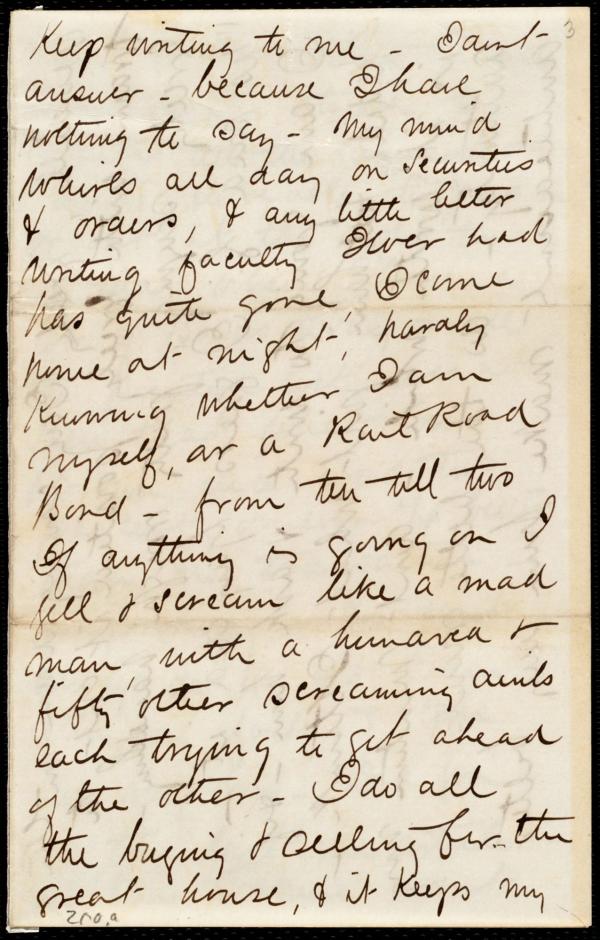 3
Keep writing to me - I dont
answer - because I have
nothing to say - My mind
whirls all day on Securities
& orders, & any little letter
writing faculty I ever had
has quite gone, I come
home at night, hardly
Knowing whether I am
myself, or a Rail Road
Bond - from ten till two
If anything is going on I
yell & scream like a mad
man, with a hundred &
fifty other screaming
each trying to get ahead
of the other - I do all
the buying & selling for the
great house, & it Keeps my